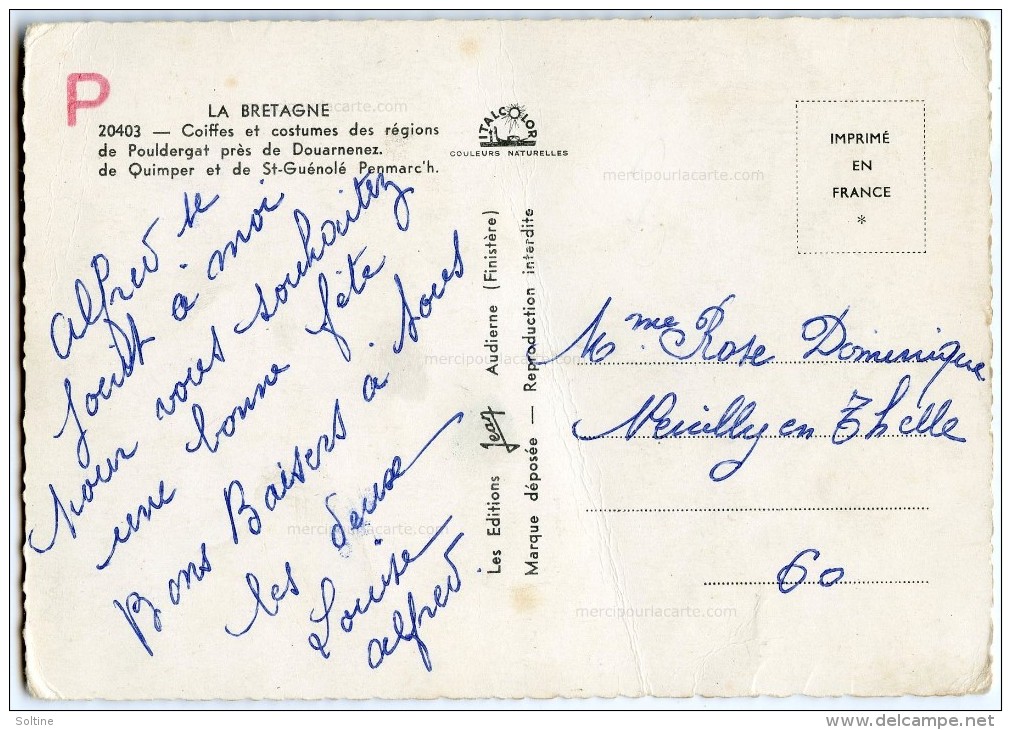 P
LA BRETAGNE
20403 — Coiffes et costumes des régions
de Pouldergat près de Douarnenez.
de Quimper et de St-Guénolé Penmarc'h.
ITALCOLOR
COULEURS NATURELLES
IMPRIMÉ
EN
FRANCE
*
alfred se
joint à moi
pour vous souhaitez
une bonne fête
Bons Baisers à tous
les deux
Louise
alfred.
Les Editions Jean Audierne (Finistère)
Marque déposée — Reproduction interdite
Mme Rose Dominique
Neuilly en Thelle
60
mercipourlacarte.com
mercipourlacarte.com
mercipourlacarte.com
mercipourlacarte.com
mercipourlacarte.com
Soltine
www.delcampe.net